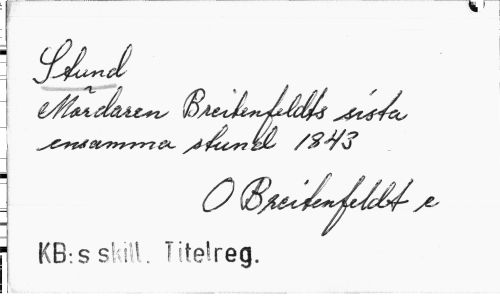 Stund
Mördaren Breitenfeldts sista
ensamma stund 1843
O Breitenfeldt e
KB:s skill. Titelreg.